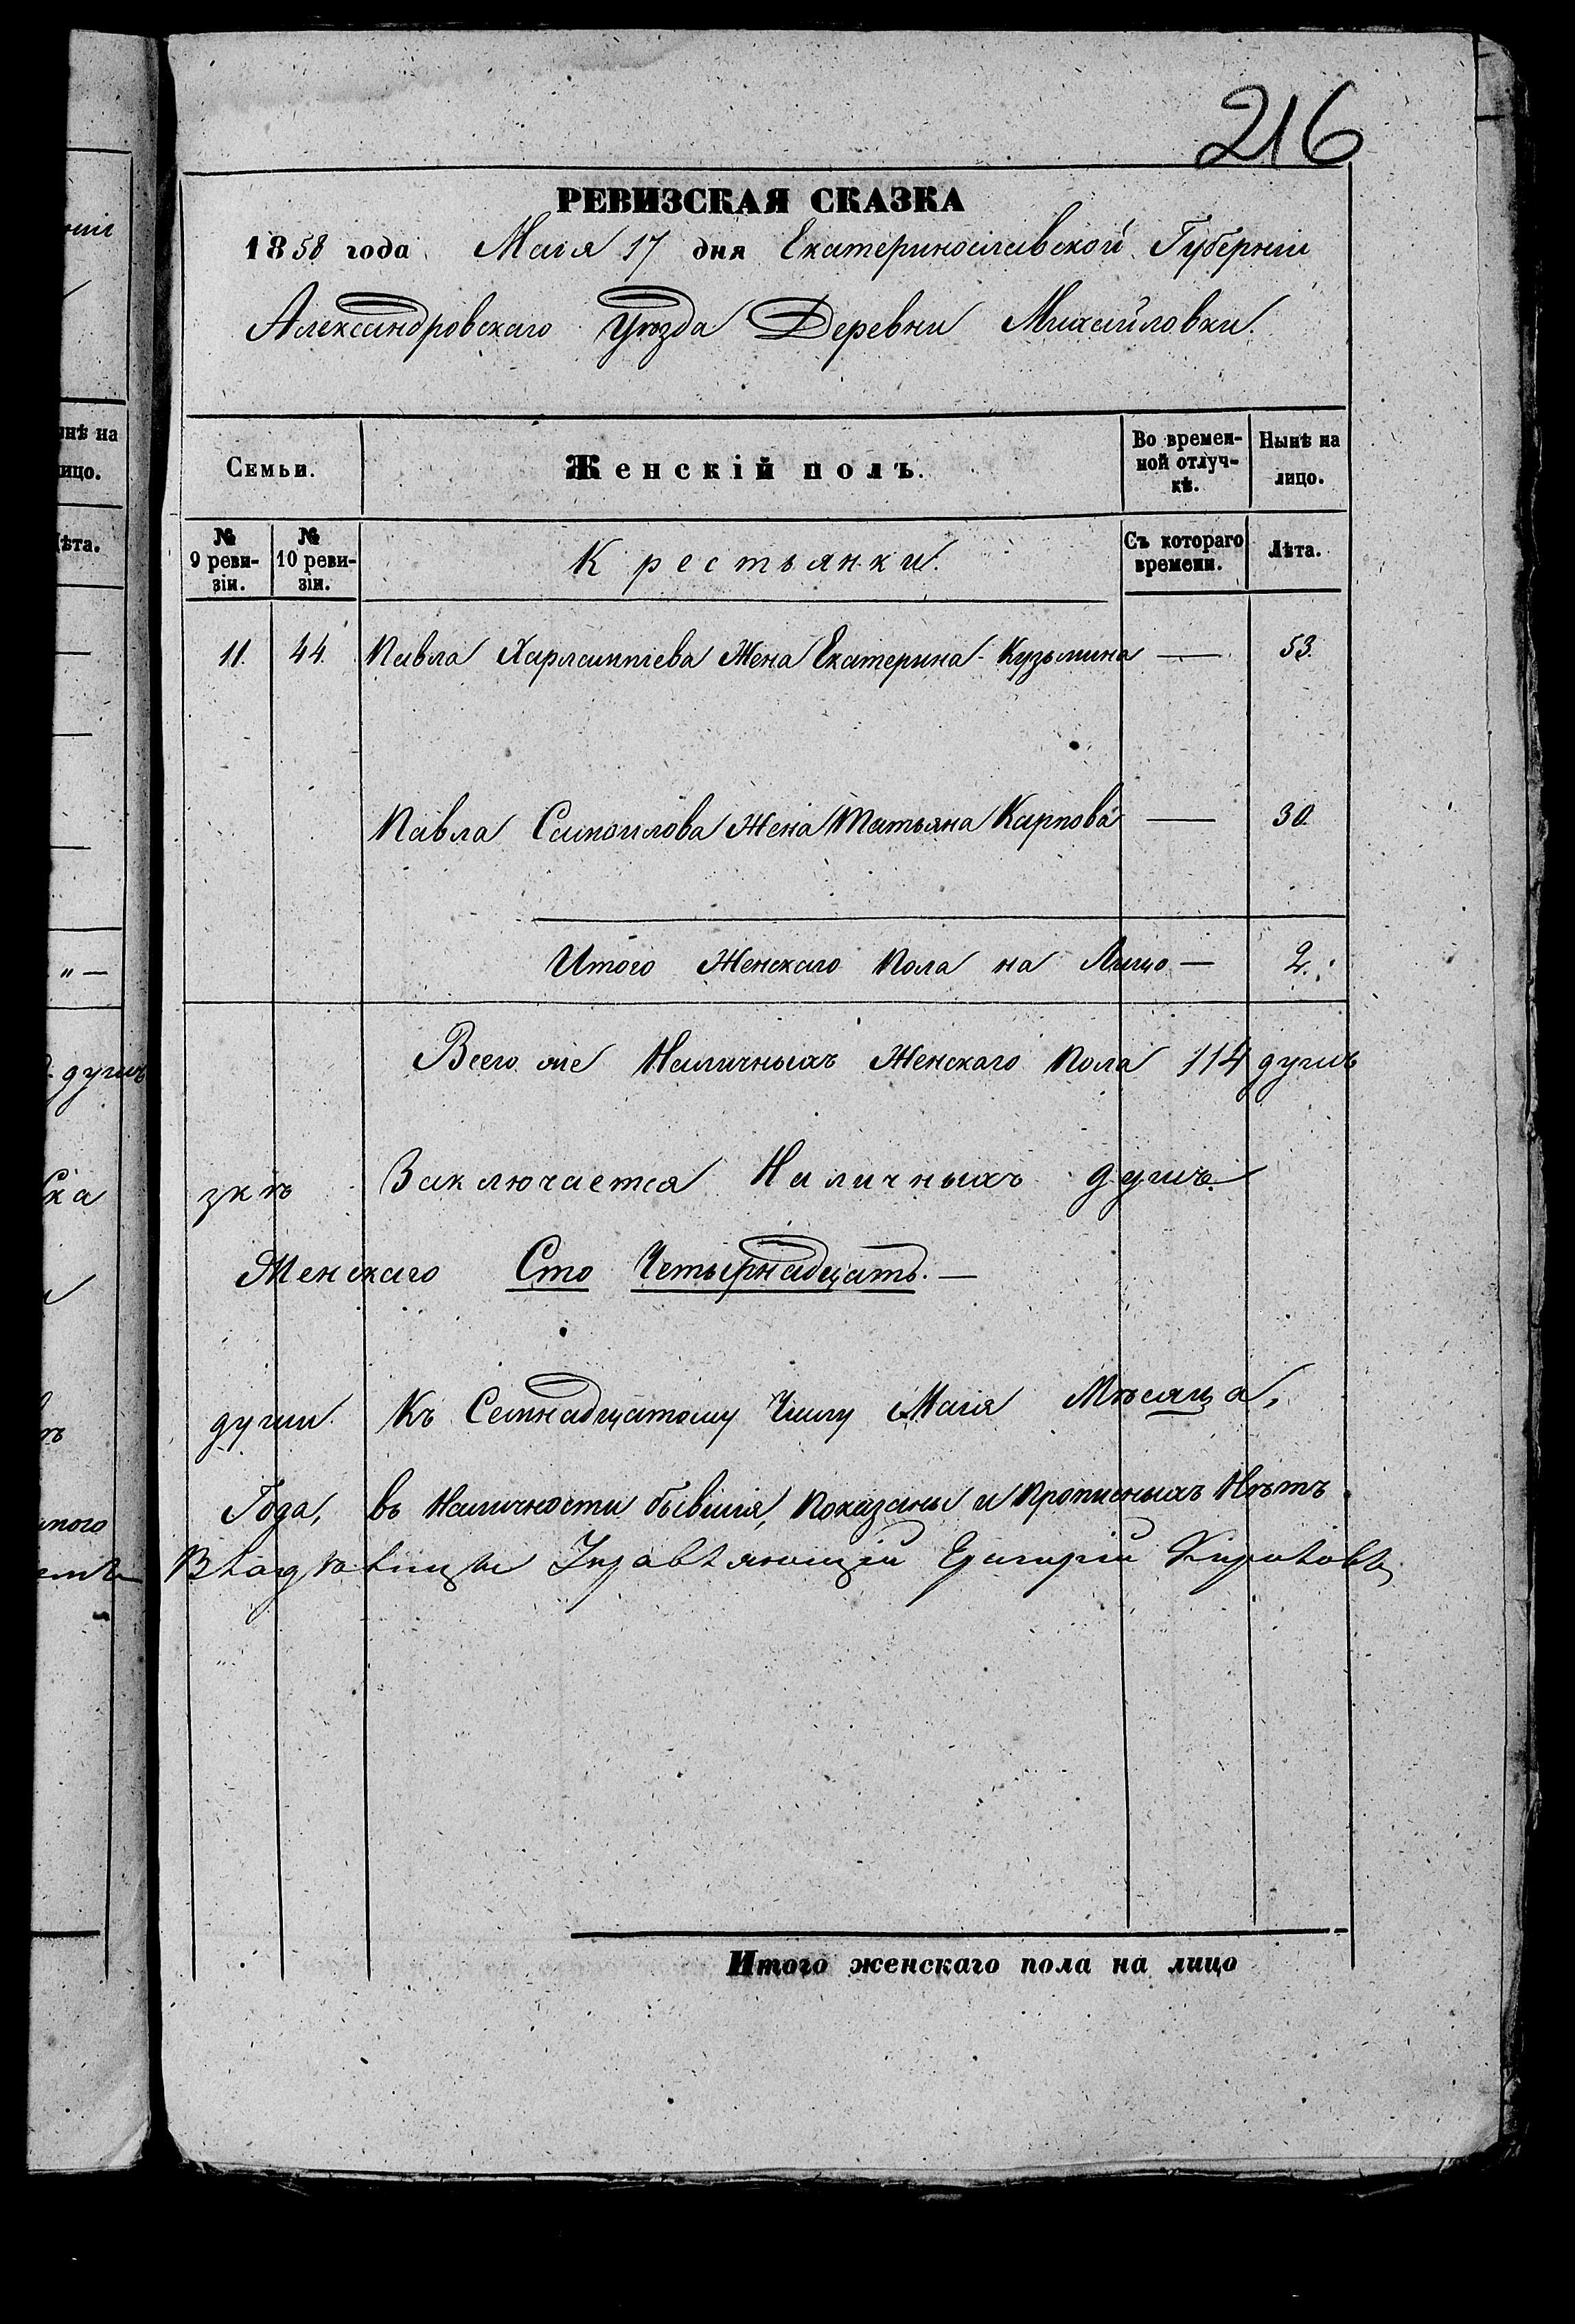 216
РЕВИЗСКАЯ СКАЗКА
1858 года Маія 17 дня Екатеринославской Губерніи
Александровскаго Уѣзда Деревни Михайловки.
Семьи.
Женскій полъ.
Во времен-
ной отлуч-
кѣ.
Нынѣ на
лицо.
№
9 реви-
зіи.
№
10 реви-
зіи.
Крестьянки.
Съ котораго
времени.
Лѣта.
11. 44. Павла Харлампіева Жена Екатерина Кузьмина — 53.
Павла Самоилова Жена Татьяна Карпова — 30.
Итого Женскаго Пола на Лицо — 2.
Всего же Наличныхъ Женскаго Пола 114 душъ
зкѣ Заключается Наличныхъ душъ
Женскаго Сто Четырнадцать. —
души Къ Семнадцатому Числу Маія Мѣсяца,
Года, въ Наличности бывшія, показаны и прописныхъ Нѣтъ.
Управляющій
Итого женскаго пола на лицо
нѣ на
ицо.
ѣта.
" —
душъ
ка